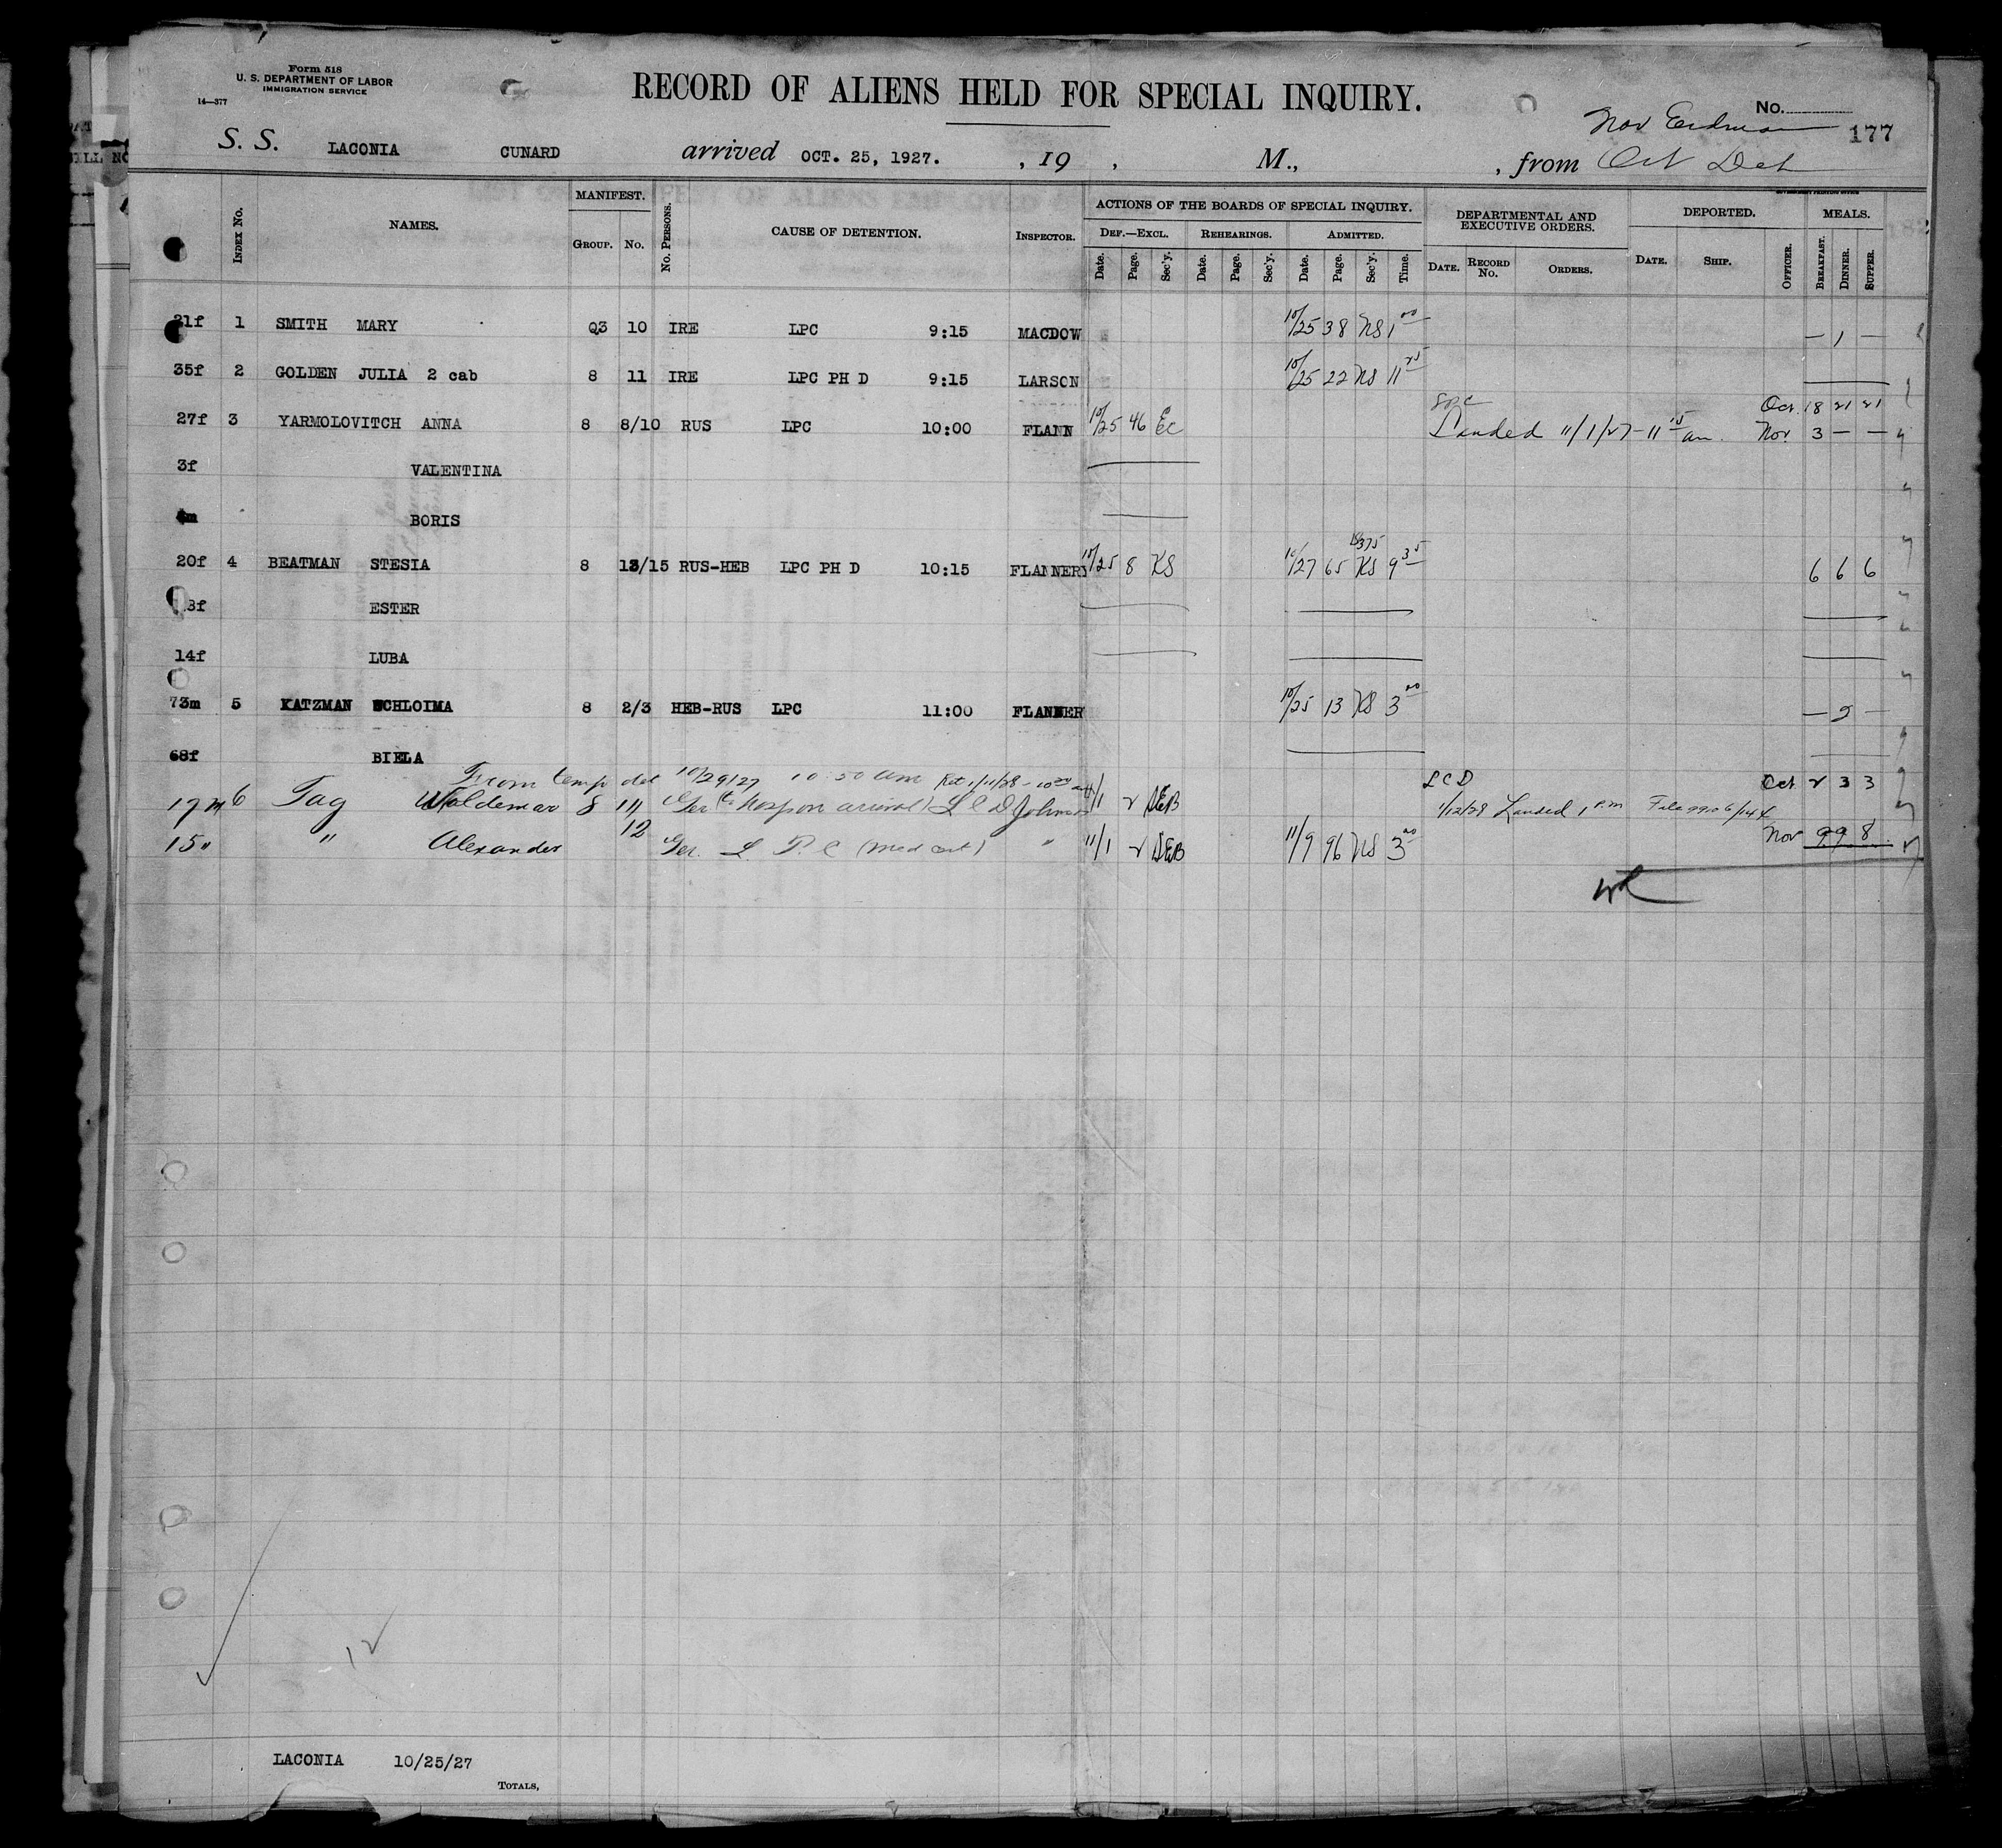 Form 518
U. S. DEPARTMENT OF LABOR
IMMIGRATION SERVICE
14—377
RECORD OF ALIENS HELD FOR SPECIAL INQUIRY.
No.
Nov Erdman 177
S. S. LACONIA CUNARD arrived OCT. 25, 1927. , 19 , M., , from Oct Det
INDEX No. NAMES. MANIFEST. GROUP. No. No. PERSONS. CAUSE OF DETENTION. INSPECTOR. ACTIONS OF THE BOARDS OF SPECIAL INQUIRY. DEPARTMENTAL AND EXECUTIVE ORDERS. DEPORTED. MEALS.
DEF.—EXCL. REHEARINGS. ADMITTED.
Date. Page. Sec'y. Date. Page. Sec'y. Date. Page. Sec'y. Time. DATE. RECORD No. ORDERS. DATE. SHIP. OFFICER. BREAKFAST. DINNER. SUPPER.
21f 1 SMITH MARY Q3 10 IRE LPC 9:15 MACDOW 10/25 38 NS 1 00 — 1 —
35f 2 GOLDEN JULIA 2 cab 8 11 IRE LPC PH D 9:15 LARSON 10/25 22 NS 11 25
27f 3 YARMOLOVITCH ANNA 8 8/10 RUS LPC 10:00 FLANN 10/25 46 EC Landed 11/1/27 - 11 15 am. Oct 18 21 21
Nov 3 — —
3f VALENTINA
BORIS
20f 4 BEATMAN STESIA 8 13/15 RUS-HEB LPC PH D 10:15 FLANNERY 10/25 8 KS 10/27 65 KS 9 35 6 6 6
ESTER
14f LUBA
73m 5 KATZMAN SCHLOIMA 8 2/3 HEB-RUS LPC 11:00 FLANNER 10/25 13 KS 3 00 — 2 —
68f BIELA
From temp det 10/29/27 10 50 am Ret 1/11/28 - 10 30 am LCD Oct 2 3 3
17m 6 Tag Woldemar 8 111 Ger (to Hosp on arrival) L C D Johnson 11/1 2 DEB 1/12/28 Landed 1 P.M File 99206/144
15 " " Alexander 12 Ger. L P C (Med Cert) " 11/1 2 DEB 11/9 96 NS 3 00 Nov 9 9 8
12
LACONIA 10/25/27
TOTALS,